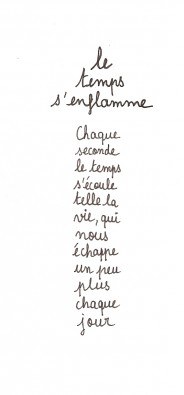 le
temps
s'enflamme
Chaque
seconde
le temps
s'écoule
telle la
vie, qui
nous
échappe
un peu
plus
chaque
jour